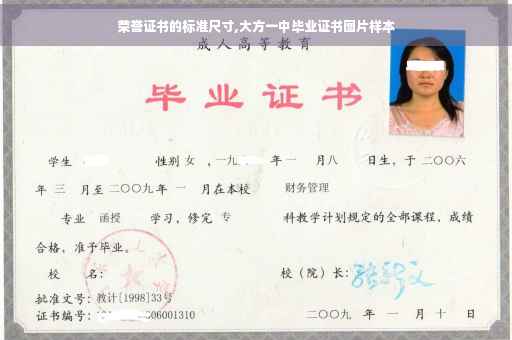 荣誉证书的标准尺寸,大方一中毕业证书图片样本
成人高等教育
毕业证书
学生 性别 女 ,一九 年 一 月 八 日生，于 二〇〇六
年 三 月至 二〇〇九 年 一 月在本校 财务管理
专业 函授 学习，修完 专 科教学计划规定的全部课程，成绩
合格，准予毕业。
校 名： 校（院）长：
批准文号：教计[1998]33号
证书编号： 06001310 二〇〇九 年 一 月 十 日